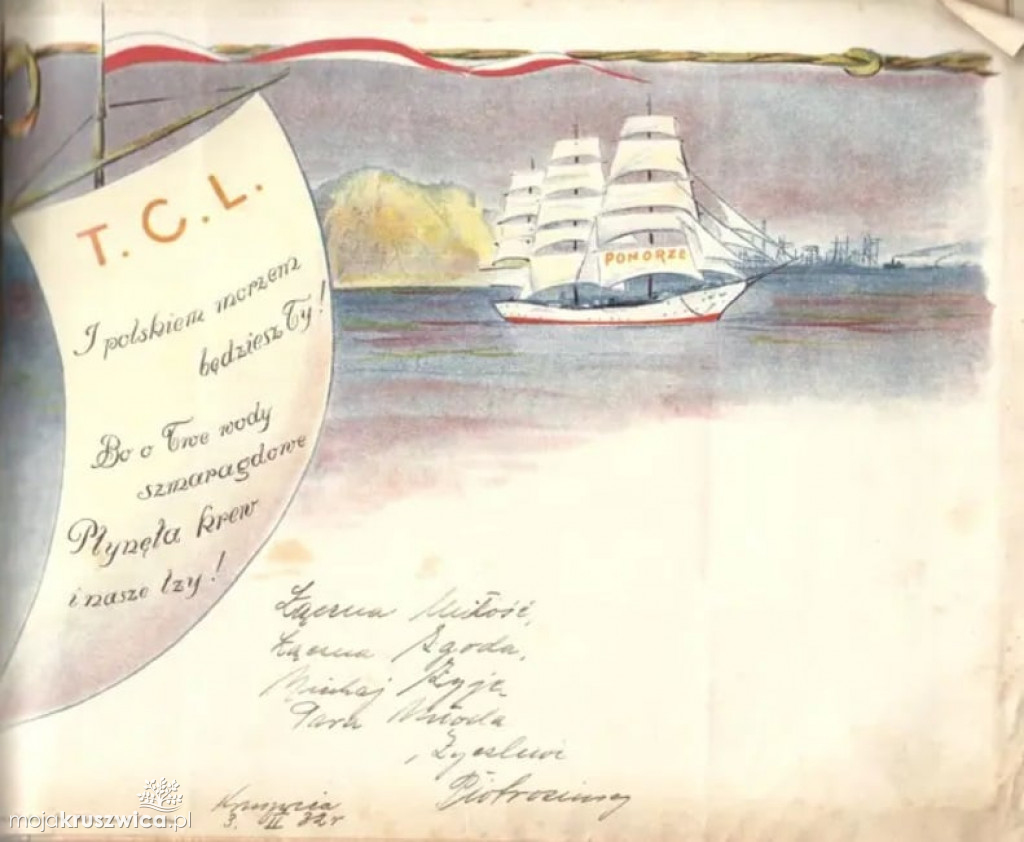 T. C. L.
I polskiem morzem
będziesz Ty!
Bo o Twe wody
szmaragdowe
Płynęła krew
i nasze łzy!
POMORZE
Łączna Miłość,
Łączna Zgoda,
Niechaj Żyje
Para Młoda
Życzliwi
Piotrosiewscy
Kruszwica
3. II 32 r
mojakruszwica.pl